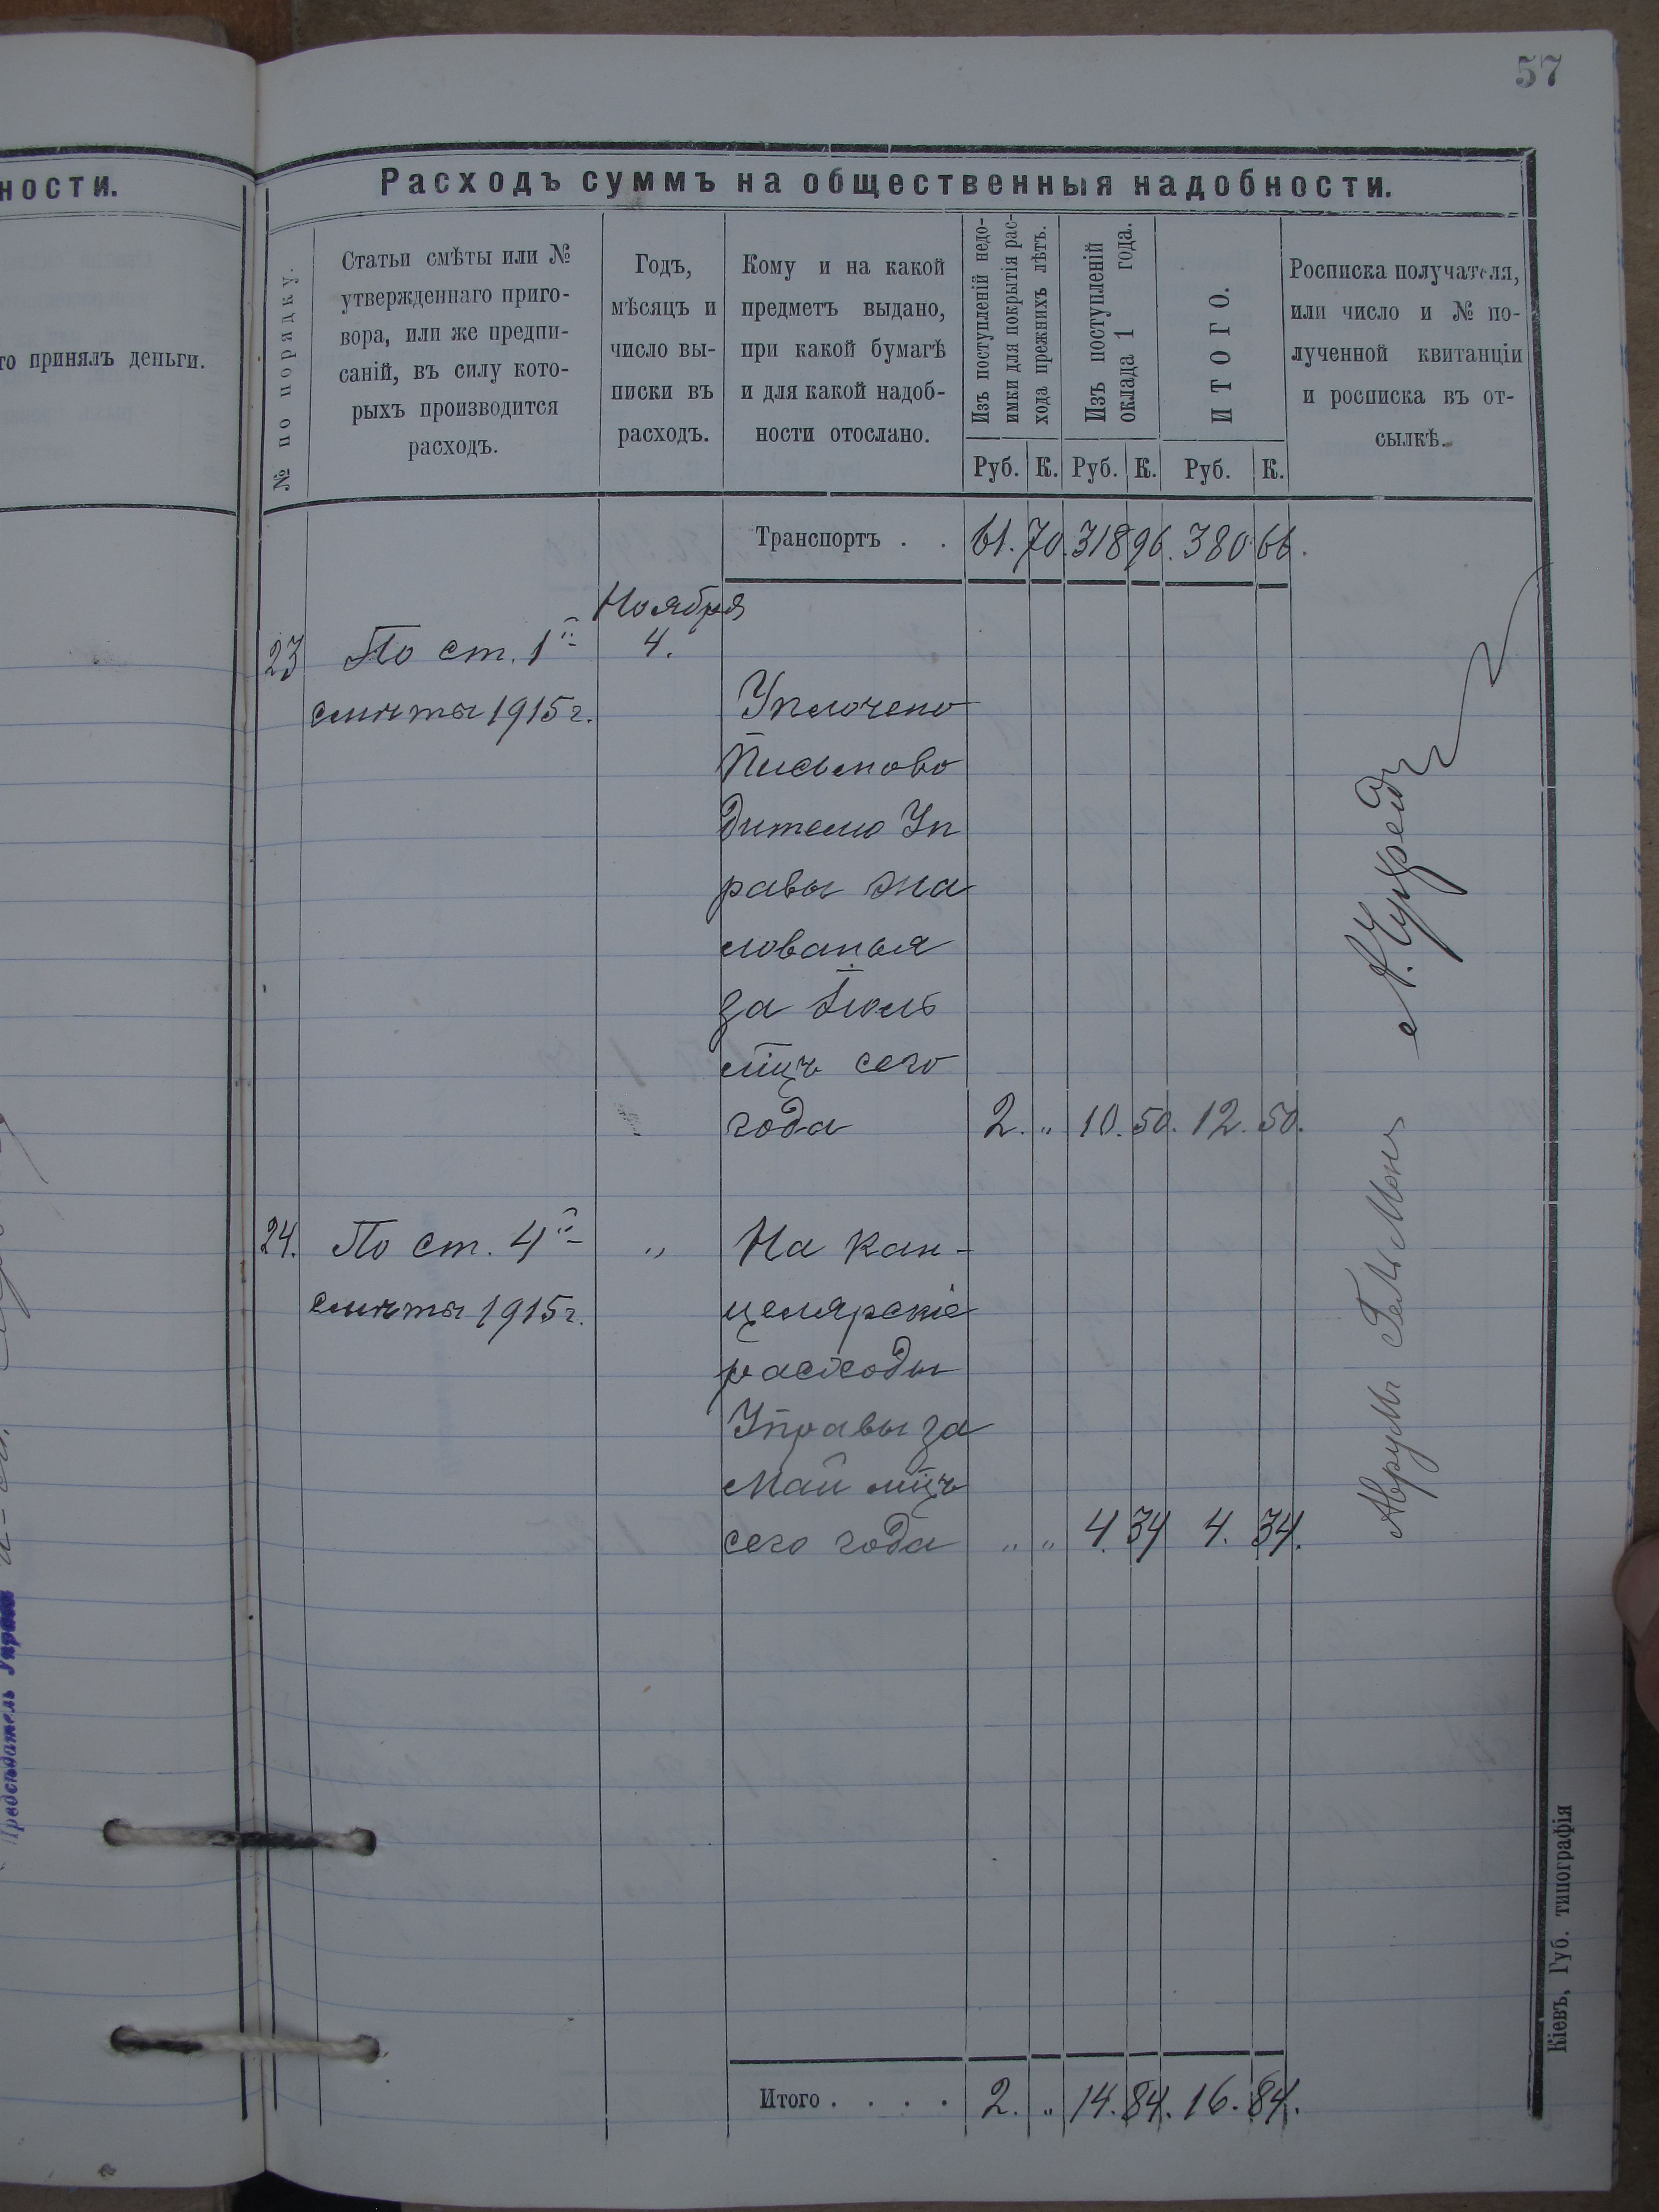 57
ности.
Расходъ суммъ на общественныя надобности.
го принялъ деньги.
№ по порядку.
Статьи смѣты или №
утвержденнаго приго-
вора, или же предпи-
саній, въ силу кото-
рыхъ производится
расходъ.
Годъ,
мѣсяцъ и
число вы-
писки въ
расходъ.
Кому и на какой
предметъ выдано,
при какой бумагѣ
и для какой надоб-
ности отослано.
Изъ поступленій недо-
имки для покрытія рас-
хода прежнихъ лѣтъ.
Изъ поступленій
оклада 1 года.
ИТОГО.
Росписка получателя,
или число и № по-
лученной квитанціи
и росписка въ от-
сылкѣ.
Руб. К. Руб. К. Руб. К.
Транспортъ . . 61. 70. 318 96. 380. 66.
Ноября
23 По ст. 1й 4.
смѣты 1915 г. Уплочено
Письмово
дителю Уп
равы жа
лованья
за Іюль
мцъ сего
года 2. „ 10. 50. 12. 50.
24. По ст. 4й „ На кан-
смѣты 1915 г. целярскіе
расходы
Управы за
Май мцъ
сего года „ „ 4. 34 4. 34.
Аврумъ
Предсѣдатель Управы
Итого . . . . 2. „ 14. 84. 16. 84.
Кіевъ, Губ. типографія